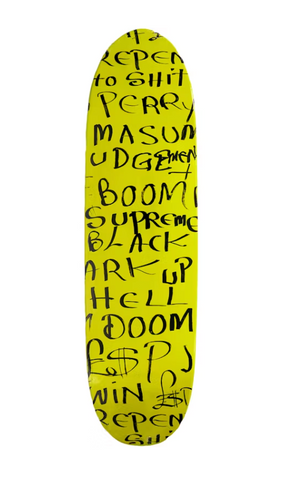 REPEN
to SHit
PERRY
MASUM
UDGEMENT
BOOM
SUPREME
BLACK
ARK UP
HELL
DOOM
£$P J
WIN £$P
REPEN
SHit